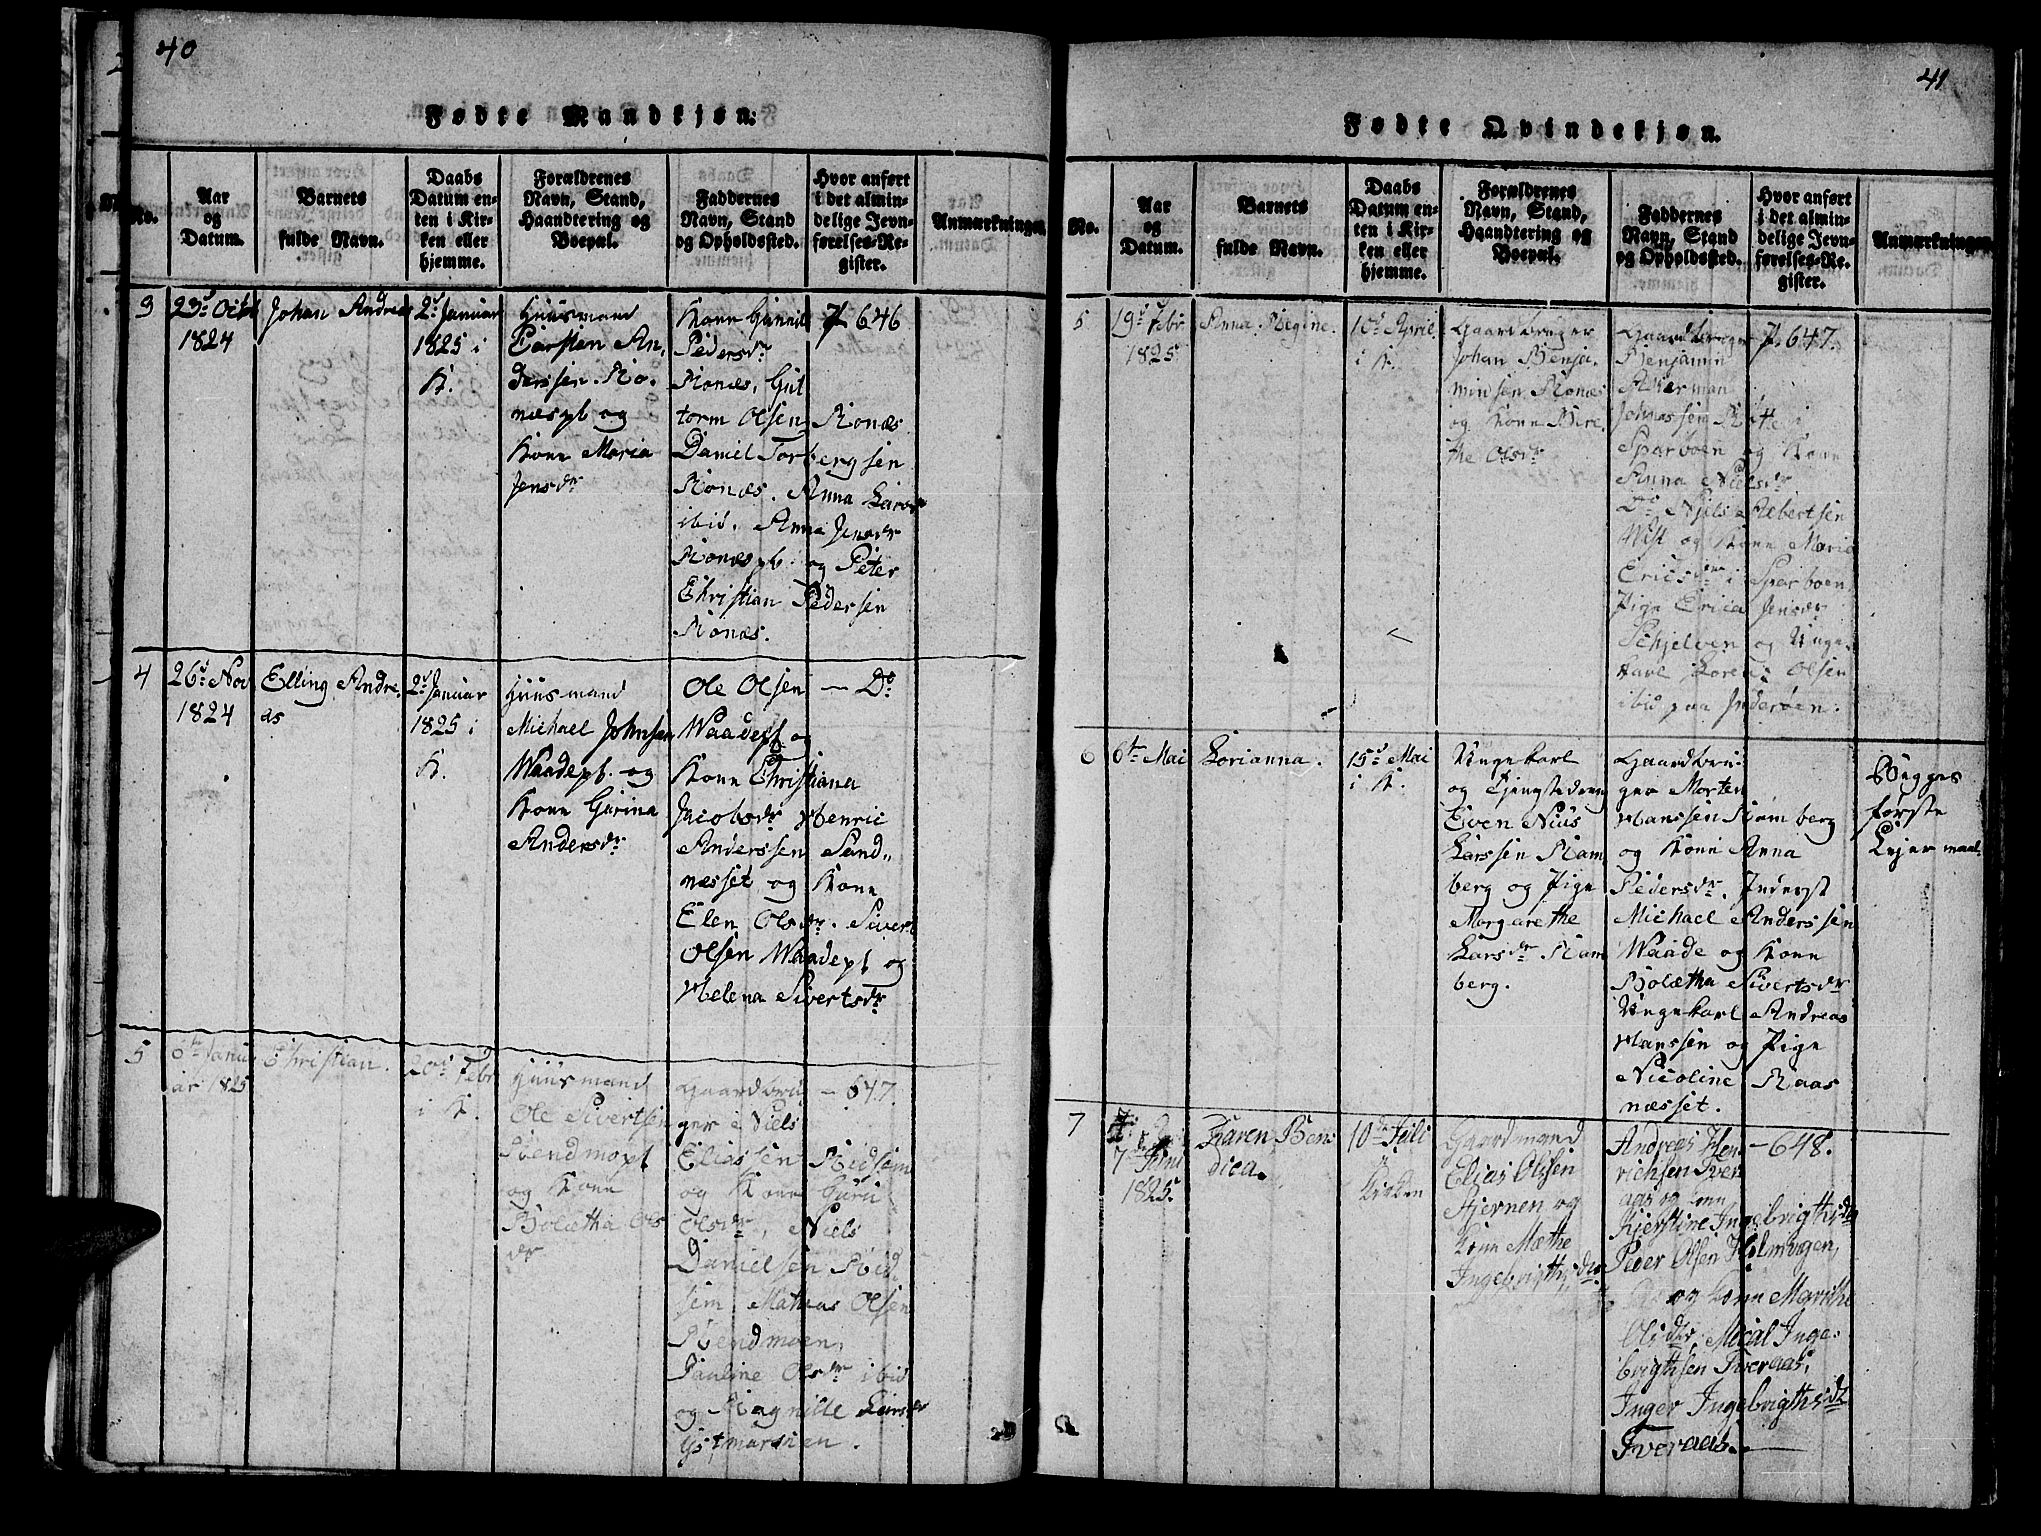 40
Fødte Mandkjøn.
No.
Aar
og
Datum.
Barnets
fulde Navn.
Daabs
Datum en-
ten i Kir-
ken eller
hjemme.
Forældrenes
Navn, Stand,
Haandtering og
Boepal.
Faddernes
Navn, Stand
og Opholdssted.
Hvor anført
i det almin-
delige Jevn-
førelses-Re-
gister.
Anmærkninger
3
23d Octb
1824
Johan Andrea
2d Januar
1825 i
K.
Huusmand
Carsten An,
derssen. Ro.
næspl og
Kone Maria
Jensdr
Kone Gunnil
Pedersdr
Ronæs, Gut
torm Olsen Ronæs
Daniel Torbergsen
Ronæs. Anna Larsdr
ibid. Anna Jensdr
Ronæspl. og Peter
Christian Pedersen
Ronæs.
P 646
4
26d Nov
1824
Elling Andre,
as
2d Januar
1825 i
K.
Huusmand
Michael Johnsen
Waadepl. og
Kone Gurina
Andersdr
Ole Olsen
Waadepl og
Kone Christiana
Jacobsdr Henric
Anderssen Sand,,
næsset og Kone
Elen Olsdr. Sivert
Olsen Waadepl og
Helena Sivertsdr
— Do
5
6te Janu
ar 1825
Christian.
20d Febr
i K.
Huusmand
Ole Sivertsen
Svendmopl
og Kone
Bolætha Ols
dr
Gaardbru
ger Niels
Eliassen Ridsem
og Kone Guru
Olsdr, Niels
Danielsen Rid,
sem. Mathias Olsen
Svendmoen,
Pauline Olsdr ibid
og Magnille Larsdr
Østmarken.
— 647.
41
Fødte Qvindekjøn.
No.
Aar
og
Datum.
Barnets
fulde Navn.
Daabs
Datum en-
ten i Kir-
ken eller
hjemme.
Forældrenes
Navn, Stand,
Haandtering og
Boepal.
Faddernes
Navn, Stand
og Opholdssted.
Hvor anført
i det almin-
delige Jevn-
førelses-Re-
gister.
Anmærkninger
5
19d Febr
1825
Anna Regine.
10d April
i K.
Gaardbruger
Johan Benja-
minsen Ronæs
og Kone Bire,
the Olsdr
Gaardbruger
Benjamin
Akerman
Johnsen Rotte i
Sparboen og Kone
Anna Nielsdr
Do Niels Albertsen
Wist og Kone Maria
Ericsdr i Sparboen
Pige Erica Jensdr
Schjelven og Unge-
karl Loren: Olsen
ibid paa Inderøen.
P. 647.
6
6te Mai
Lorianna.
15d Mai
i K.
Ungekarl
og Tjenstedreng
Even Nius
Larssen Ram
berg og Pige
Margarethe
Larsdr. Ram
berg.
Gaardbru-
ger Morten
Hanssen Rømberg
og Kone Anna
Pedersdr. Inderst
Michael Anderssen
Waade og Kone
Bolætha Sivertsdr
Ungekarl Andreas
Hanssen og Pige
Nicoline Raas
næsset.
Begges
første
Lejermaal.
7
7de Juni
1825.
Karen Ben
dica.
10de Juli
i
Kirken
Gaardmand
Elias Olssen
Stjernen og
Kone Mæthe
Ingebrigthsdtr
Andreas Hen
richsen Tver
aas og Kone
Kjerstine Ingebrigthsdtr
Peder Olsen Holmvgen,
og Kone Marithe
Olsdtr, Mical Inge-
brigthsen Tveraas,
Inger Ingebrigthsdtr
Tveraas.
— 648.